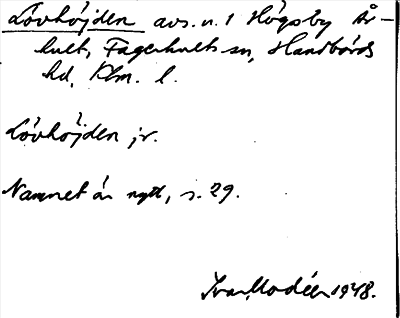 Lövhöjden avs. n. 1 Högsby År-
hult, Fagerhults sn, Handbörds
hd, Klm. l.
Lövhöjden jr.
Namnet är nytt, s. 29.
Ivar Modéer 1948.